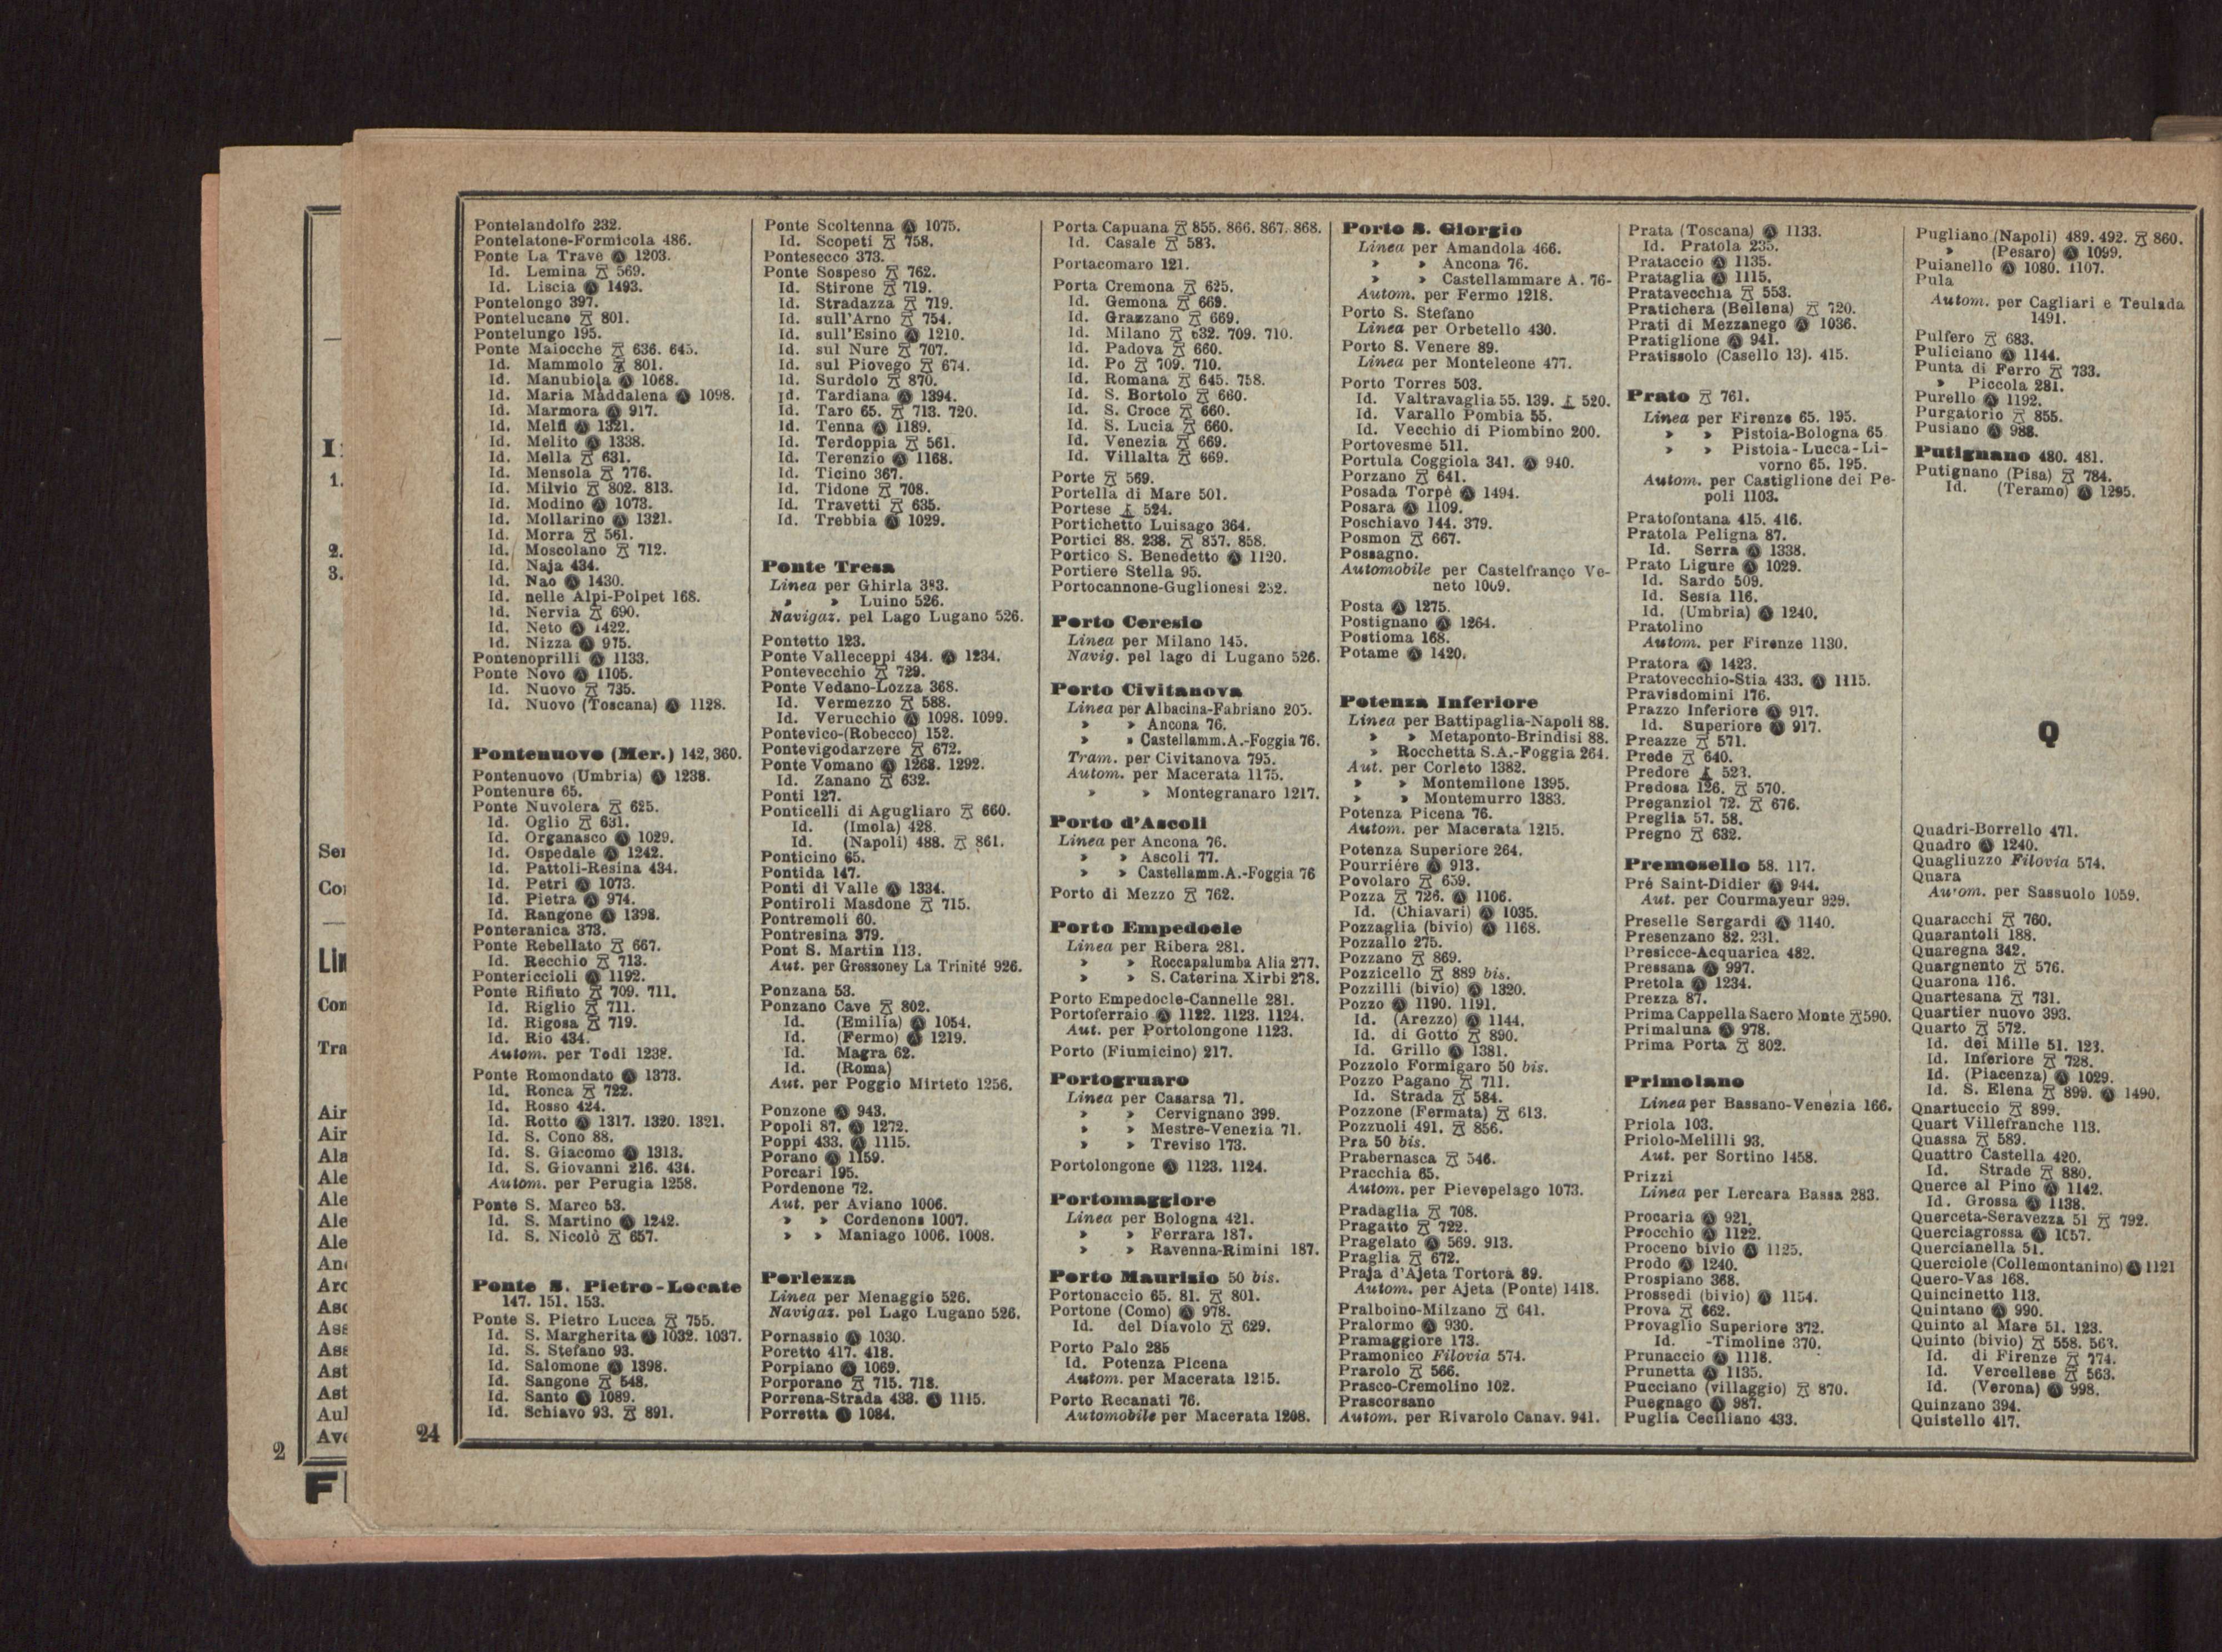 Pontelandolfo 232.
Pontelatone-Formicola 486.
Ponte La Trave 🅐 1203.
Id. Lemina 569.
Id. Liscia 🅐 1493.
Pontelongo 397.
Pontelucano 801.
Pontelungo 195.
Ponte Maiocche 636. 645.
Id. Mammolo 801.
Id. Manubiola 🅐 1068.
Id. Maria Maddalena 🅐 1098.
Id. Marmora 🅐 917.
Id. Melfi 🅐 1321.
Id. Melito 🅐 1338.
Id. Mella 631.
Id. Mensola 776.
Id. Milvio 802. 813.
Id. Modino 🅐 1073.
Id. Mollarino 🅐 1321.
Id. Morra 561.
Id. Moscolano 712.
Id. Naja 434.
Id. Nao 🅐 1430.
Id. nelle Alpi-Polpet 168.
Id. Nervia 690.
Id. Neto 🅐 1422.
Id. Nizza 🅐 975.
Pontenoprilli 🅐 1133.
Ponte Novo 🅐 1105.
Id. Nuovo 735.
Id. Nuovo (Toscana) 🅐 1128.
Pontenuovo (Mer.) 142, 360.
Pontenuovo (Umbria) 🅐 1238.
Pontenure 65.
Ponte Nuvolera 625.
Id. Oglio 631.
Id. Organasco 🅐 1029.
Id. Ospedale 🅐 1242.
Id. Pattoli-Resina 434.
Id. Petri 🅐 1073.
Id. Pietra 🅐 974.
Id. Rangone 🅐 1398.
Ponteranica 373.
Ponte Rebellato 667.
Id. Recchio 713.
Pontericcioli 🅐 1192.
Ponte Rifiuto 709. 711.
Id. Riglio 711.
Id. Rigosa 719.
Id. Rio 434.
Autom. per Todi 1238.
Ponte Romondato 🅐 1373.
Id. Ronca 722.
Id. Rosso 424.
Id. Rotto 🅐 1317. 1320. 1321.
Id. S. Cono 88.
Id. S. Giacomo 🅐 1313.
Id. S. Giovanni 216. 434.
Autom. per Perugia 1258.
Ponte S. Marco 53.
Id. S. Martino 🅐 1242.
Id. S. Nicolò 657.
Ponte S. Pietro-Locate
147. 151. 153.
Ponte S. Pietro Lucca 755.
Id. S. Margherita 🅐 1032. 1037.
Id. S. Stefano 93.
Id. Salomone 🅐 1398.
Id. Sangone 548.
Id. Santo 🅐 1089.
Id. Schiavo 93. 891.
Ponte Scoltenna 🅐 1075.
Id. Scopeti 758.
Pontesecco 373.
Ponte Sospeso 762.
Id. Stirone 719.
Id. Stradazza 719.
Id. sull'Arno 754.
Id. sull'Esino 🅐 1210.
Id. sul Nure 707.
Id. sul Piovego 674.
Id. Surdolo 870.
Id. Tardiana 🅐 1394.
Id. Taro 65. 713. 720.
Id. Tenna 🅐 1189.
Id. Terdoppia 561.
Id. Terenzio 🅐 1168.
Id. Ticino 367.
Id. Tidone 708.
Id. Travetti 635.
Id. Trebbia 🅐 1029.
Ponte Tresa
Linea per Ghirla 383.
» » Luino 526.
Navigaz. pel Lago Lugano 526.
Pontetto 123.
Ponte Valleceppi 434. 🅐 1234.
Pontevecchio 729.
Ponte Vedano-Lozza 368.
Id. Vermezzo 588.
Id. Verucchio 🅐 1098. 1099.
Pontevico-(Robecco) 152.
Pontevigodarzere 672.
Ponte Vomano 🅐 1268. 1292.
Id. Zanano 632.
Ponti 127.
Ponticelli di Agugliaro 660.
Id. (Imola) 428.
Id. (Napoli) 488. 861.
Ponticino 65.
Pontida 147.
Ponti di Valle 🅐 1334.
Pontiroli Masdone 715.
Pontremoli 60.
Pontresina 379.
Pont S. Martin 113.
Aut. per Gressoney La Trinité 926.
Ponzana 53.
Ponzano Cave 802.
Id. (Emilia) 🅐 1054.
Id. (Fermo) 🅐 1219.
Id. Magra 62.
Id. (Roma)
Aut. per Poggio Mirteto 1256.
Ponzone 🅐 943.
Popoli 87. 🅐 1272.
Poppi 433. 🅐 1115.
Porano 🅐 1159.
Porcari 195.
Pordenone 72.
Aut. per Aviano 1006.
» » Cordenons 1007.
» » Maniago 1006. 1008.
Porlezza
Linea per Menaggio 526.
Navigaz. pel Lago Lugano 526.
Pornassio 🅐 1030.
Poretto 417. 418.
Porpiano 🅐 1069.
Porporano 715. 718.
Porrena-Strada 433. 🅐 1115.
Porretta 🅐 1084.
Porta Capuana 855. 866. 867. 868.
Id. Casale 583.
Portacomaro 121.
Porta Cremona 625.
Id. Gemona 669.
Id. Grazzano 669.
Id. Milano 632. 709. 710.
Id. Padova 660.
Id. Po 709. 710.
Id. Romana 645. 758.
Id. S. Bortolo 660.
Id. S. Croce 660.
Id. S. Lucia 660.
Id. Venezia 669.
Id. Villalta 669.
Porte 569.
Portella di Mare 501.
Portese 524.
Portichetto Luisago 364.
Portici 88. 238. 857. 858.
Portico S. Benedetto 🅐 1120.
Portiere Stella 95.
Portocannone-Guglionesi 232.
Porto Ceresio
Linea per Milano 145.
Navig. pel lago di Lugano 526.
Porto Civitanova
Linea per Albacina-Fabriano 205.
» » Ancona 76.
» » Castellamm.A.-Foggia 76.
Tram. per Civitanova 795.
Autom. per Macerata 1175.
» » Montegranaro 1217.
Porto d'Ascoli
Linea per Ancona 76.
» » Ascoli 77.
» » Castellamm.A.-Foggia 76
Porto di Mezzo 762.
Porto Empedocle
Linea per Ribera 281.
» » Roccapalumba Alia 277.
» » S. Caterina Xirbi 278.
Porto Empedocle-Cannelle 281.
Portoferraio 🅐 1122. 1123. 1124.
Aut. per Portolongone 1123.
Porto (Fiumicino) 217.
Portogruaro
Linea per Casarsa 71.
» » Cervignano 399.
» » Mestre-Venezia 71.
» » Treviso 173.
Portolongone 🅐 1123. 1124.
Portomaggiore
Linea per Bologna 421.
» » Ferrara 187.
» » Ravenna-Rimini 187.
Porto Maurizio 50 bis.
Portonaccio 65. 81. 801.
Portone (Como) 🅐 978.
Id. del Diavolo 629.
Porto Palo 285
Id. Potenza Picena
Autom. per Macerata 1215.
Porto Recanati 76.
Automobile per Macerata 1208.
Porto S. Giorgio
Linea per Amandola 466.
» » Ancona 76.
» » Castellammare A. 76-
Autom. per Fermo 1218.
Porto S. Stefano
Linea per Orbetello 430.
Porto S. Venere 89.
Linea per Monteleone 477.
Porto Torres 503.
Id. Valtravaglia 55. 139. 520.
Id. Varallo Pombia 55.
Id. Vecchio di Piombino 200.
Portovesme 511.
Portula Coggiola 341. 🅐 940.
Porzano 641.
Posada Torpè 🅐 1494.
Posara 🅐 1109.
Poschiavo 144. 379.
Posmon 667.
Possagno.
Automobile per Castelfranco Ve-
neto 1009.
Posta 🅐 1275.
Postignano 🅐 1264.
Postioma 168.
Potame 🅐 1420.
Potenza Inferiore
Linea per Battipaglia-Napoli 88.
» » Metaponto-Brindisi 88.
» Rocchetta S.A.-Foggia 264.
Aut. per Corleto 1382.
» » Montemilone 1395.
» » Montemurro 1383.
Potenza Picena 76.
Autom. per Macerata 1215.
Potenza Superiore 264.
Pourriére 🅐 913.
Povolaro 659.
Pozza 726. 🅐 1106.
Id. (Chiavari) 🅐 1035.
Pozzaglia (bivio) 🅐 1168.
Pozzallo 275.
Pozzano 869.
Pozzicello 889 bis.
Pozzilli (bivio) 🅐 1320.
Pozzo 🅐 1190. 1191.
Id. (Arezzo) 🅐 1144.
Id. di Gotto 890.
Id. Grillo 🅐 1381.
Pozzolo Formigaro 50 bis.
Pozzo Pagano 711.
Id. Strada 584.
Pozzone (Fermata) 613.
Pozzuoli 491. 856.
Pra 50 bis.
Prabernasca 546.
Pracchia 65.
Autom. per Pievepelago 1073.
Pradaglia 708.
Pragatto 722.
Pragelato 🅐 569. 913.
Praglia 672.
Praja d'Ajeta Tortora 89.
Autom. per Ajeta (Ponte) 1418.
Pralboino-Milzano 641.
Pralormo 🅐 930.
Pramaggiore 173.
Pramonico Filovia 574.
Prarolo 566.
Prasco-Cremolino 102.
Prascorsano
Autom. per Rivarolo Canav. 941.
Prata (Toscana) 🅐 1133.
Id. Pratola 235.
Prataccio 🅐 1135.
Prataglia 🅐 1115.
Pratavecchia 553.
Pratichera (Bellena) 720.
Prati di Mezzanego 🅐 1036.
Pratiglione 🅐 941.
Pratissolo (Casello 13). 415.
Prato 761.
Linea per Firenze 65. 195.
» » Pistoia-Bologna 65
» » Pistoia-Lucca-Li-
vorno 65. 195.
Autom. per Castiglione dei Pe-
poli 1103.
Pratofontana 415. 416.
Pratola Peligna 87.
Id. Serra 🅐 1338.
Prato Ligure 🅐 1029.
Id. Sardo 509.
Id. Sesia 116.
Id. (Umbria) 🅐 1240.
Pratolino
Autom. per Firenze 1130.
Pratora 🅐 1423.
Pratovecchio-Stia 433. 🅐 1115.
Pravisdomini 176.
Prazzo Inferiore 🅐 917.
Id. Superiore 🅐 917.
Preazze 571.
Prede 640.
Predore 523.
Predosa 126. 570.
Preganziol 72. 676.
Preglia 57. 58.
Pregno 632.
Premosello 58. 117.
Pré Saint-Didier 🅐 944.
Aut. per Courmayeur 929.
Preselle Sergardi 🅐 1140.
Presenzano 82. 231.
Presicce-Acquarica 482.
Pressana 🅐 997.
Pretola 🅐 1234.
Prezza 87.
Prima Cappella Sacro Monte 590.
Primaluna 🅐 978.
Prima Porta 802.
Primolano
Linea per Bassano-Venezia 166.
Priola 103.
Priolo-Melilli 93.
Aut. per Sortino 1458.
Prizzi
Linea per Lercara Bassa 283.
Procaria 🅐 921.
Procchio 🅐 1122.
Proceno bivio 🅐 1125.
Prodo 🅐 1240.
Prospiano 368.
Prossedi (bivio) 🅐 1154.
Prova 662.
Provaglio Superiore 372.
Id. -Timoline 370.
Prunaccio 🅐 1118.
Prunetta 🅐 1135.
Pucciano (villaggio) 870.
Puegnago 🅐 987.
Puglia Ceciliano 433.
Pugliano (Napoli) 489. 492. 860.
» (Pesaro) 🅐 1099.
Puianello 🅐 1080. 1107.
Pula
Autom. per Cagliari e Teulada
1491.
Pulfero 683.
Puliciano 🅐 1144.
Punta di Ferro 733.
» Piccola 281.
Purello 🅐 1192.
Purgatorio 855.
Pusiano 🅐 988.
Putignano 480. 481.
Putignano (Pisa) 784.
Id. (Teramo) 🅐 1295.
Q
Quadri-Borrello 471.
Quadro 🅐 1240.
Quagliuzzo Filovia 574.
Quara
Autom. per Sassuolo 1059.
Quaracchi 760.
Quarantoli 188.
Quaregna 342.
Quargnento 576.
Quarona 116.
Quartesana 731.
Quartier nuovo 393.
Quarto 572.
Id. dei Mille 51. 123.
Id. Inferiore 728.
Id. (Piacenza) 🅐 1029.
Id. S. Elena 899. 🅐 1490.
Qnartuccio 899.
Quart Villefranche 113.
Quassa 589.
Quattro Castella 420.
Id. Strade 880.
Querce al Pino 🅐 1142.
Id. Grossa 🅐 1138.
Querceta-Seravezza 51 792.
Querciagrossa 🅐 1057.
Quercianella 51.
Querciole (Collemontanino) 🅐 1121
Quero-Vas 168.
Quincinetto 113.
Quintano 🅐 990.
Quinto al Mare 51. 123.
Quinto (bivio) 558. 563.
Id. di Firenze 774.
Id. Vercellese 563.
Id. (Verona) 🅐 998.
Quinzano 394.
Quistello 417.
24
1.
2.
3.
Com
Tra
Air
Air
Ala
Ale
Ale
Ale
Ale
Ast
Ast
2
F